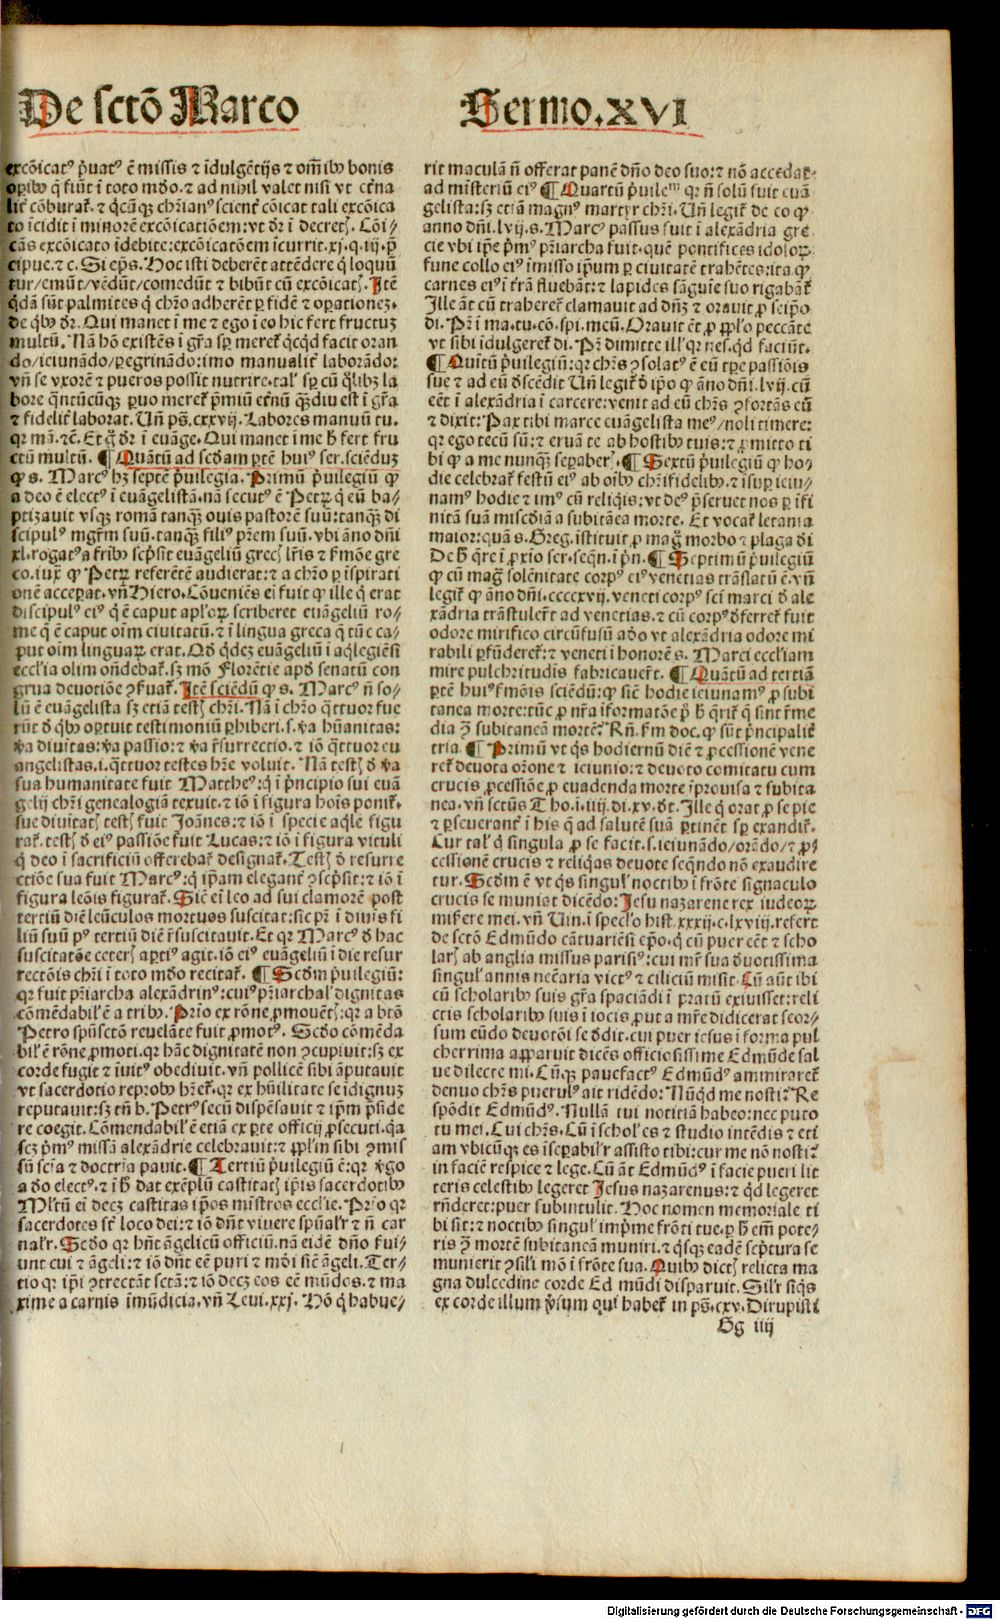 De sctō Marco
Sermo.XVI
excōicatꝰ p̄uatꝰ ē missis ⁊ īdulgētijs ⁊ om̄ibꝰ bonis
oꝑibꝰ q̄ fiūt ī toto mūdo.⁊ ad nihil valet nisi vt et̄na
lit̄ cōburat̄.⁊ q̄cūqꝫ chr̄ianꝰ scient̄ cōicat tali excōica
to īcidit ī minorē excōicatiōem:vt dr̄ ī decret̄. Cōi/
cās excōicato īdebite:excōicatōem īcurrit.xj.q.iij.p̄
cipue.⁊c. Si eps̄. Hoc isti deberēt attēdere q̄ loquū
tur/emūt/vēdūt/comedūt ⁊ bibūt cū excōicat̄. Itē
q̄dā sūt palmites q̄ chr̄o adherēt ꝑ fidē ⁊ oꝑationeꝫ.
de q̄bꝰ dr̄. Qui manet ī me ⁊ ego ī eo hic fert fructuꝫ
multū. Nā hō existēs ī gr̄a sꝑ meret̄ q̇cq̇d facit oran
do/ieiunādo/ꝑegrinādo:imo manualit̄ laborādo:
vn̄ se vxorē ⁊ pueros possit nutrire.tal̄ sꝑ cū q̄libꝫ la
bore q̄ntūcūqꝫ ꝑuo meret̄ p̄miū et̄nū q̄ꝫdiu est ī gr̄a
⁊ fidelit̄ laborat. Vn̄ ps̄.cxxvij. Labores manuū tu.
qr mā.⁊c̄. Et q̄ dr̄ ī euāge. Qui manet ī me h̄ fert fru
ctū multū. ¶ Quātū ad scd̄am ꝑtē huiꝰ ser.sciēduꝫ
ꝙ s. Marcꝰ hꝫ septē p̄uilegia. Primū p̄uilegiū ꝙ
a deo ē electꝰ ī euāgelistā.nā secutꝰ ē Petrꝝ q̄ eū ba/
ptizauit vsqꝫ romā tanqꝫ̄ ouis pastorē suū:tanqꝫ̄ di
scipulꝰ mgr̄m suū.tanqꝫ̄ filiꝰ pr̄em suū.vbi āno dn̄i
xl.rogatꝰ a fribꝰ scp̄sit euāgeliū grecꝭ lr̄is ⁊ ẜmōe gre
co.iux̄ ꝙ Petrꝝ referētē audierat:⁊ a chr̄o ꝑ īspirati
onē acceꝑat.vn̄ Hiero. Cōueniēs ei fuit ꝙ ille q̄ erat
discipulꝰ eiꝰ q̄ ē caput apl̄oꝝ scriberet euāgeliū ro/
me q̄ ē caput oīm ciuitatū.⁊ ī lingua greca q̄ tūc ca/
put oīm linguaꝝ erat. Qd̄ q̇deꝫ euāgeliū ī aq̇legiēsi
eccl̄ia olim on̄debat̄.sꝫ mō Florētie apd̄ senatū con
grua deuotiōe ꝯẜuat̄. Itē sciēdū ꝙ s. Marcꝰ n̄ so/
lū ē euāgelista sꝫ etiā testꝭ chr̄i. Nā ī chr̄o q̄ttuor fue
rūt d̄ q̄bꝰ oꝑtuit testimoniū ꝑhiberi.s.v̄a hūanitas:
v̄a diuitas:v̄a passio:⁊ v̄a r̄surrectio.⁊ iō q̄ttuor eu
angelistas.i.q̄ttuor testes hr̄e voluit. Nā testꝭ d̄ v̄a
sua humanitate fuit Mattheꝰ:q̄ ī p̄ncipio sui euā
gelij chr̄i genealogiā texuit.⁊ iō ī figura hoīs ponit̄.
sue diuitatꝭ testꝭ fuit Joānes:⁊ iō ī specie aq̇le figu
rat̄.testꝭ d̄ eiꝰ passiōe fuit Lucas:⁊ iō ī figura vituli
q̄ deo ī sacrificiū offerebat̄ designat̄. Testꝭ d̄ resurre
ctiōe sua fuit Marcꝰ:q̄ ip̄am elegant̄ ꝯscp̄sit:⁊ iō ī
figura leōis figurat̄. Sic̄ ei leo ad sui clamorē post
tertiū diē leūculos mortuos suscitat:sic pr̄ ī diuīs fi
liū suū pꝰ tertiū diē r̄suscitauit. Et qr Marcꝰ d̄ hac
suscitatōe ceterꝭ aꝑtiꝰ agit.iō eiꝰ euāgeliū ī die resur
rectōis chr̄i ī toto mūdo recitat̄. ¶ Scd̄m p̄uilegiū:
qr fuit pr̄iarcha alexādrinꝰ:cuiꝰ pr̄iarchal̄ dignitas
cōmēdabil̄ ē a tribꝰ. Prīo ex rōne ꝓmouētꝭ:qr a btō
Petro spūsctō reuelāte fuit ꝓmotꝰ. Scd̄o cōmēda
bil̄ ē rōne ꝓmoti.qr hāc dignitatē non ꝯcupiuit:sꝫ ex
corde fugit ⁊ īuitꝰ obediuit.vn̄ pollicē sibi āputauit
vt sacerdotio reprobꝰ hr̄et̄.qr ex hūilitate se īdignuꝫ
reputauit:sꝫ tn̄ b. Petrꝰ secū dispēsauit ⁊ ip̄m p̄side
re coegit. Cōmendabil̄ ē etiā ex ꝑte officij ꝓsecuti.q̄a
scꝫ p̄mꝰ missā alexādrie celebrauit:⁊ ppl̄m sibi ꝯmis
sū scīa ⁊ doctr̄ia pauit. ¶ Tertiū p̄uilegiū ē:qr v̄go
a d̄o electꝰ.⁊ ī h̄ dat exēplū castitatꝭ ip̄is sacerdotibꝰ
Ml̄tū ei decꝫ castitas ip̄os mīstros eccl̄ie. Prīo qr
sacerdotes st̄ loco dei:⁊ iō dn̄t viuere spūal̄r ⁊ n̄ car
nal̄r. Scd̄o qr hn̄t āgelicū officiū.nā eidē dn̄o ẜui/
unt cui ⁊ āgeli:⁊ iō dn̄t eē puri ⁊ mōi sic̄ āgeli. Ter/
tio qr ip̄i ꝯtrectāt sctā:⁊ iō decꝫ eos eē mūdos.⁊ ma
xime a carnis īmūdicia.vn̄ Leui.xxj. Hō q̄ habue/
rit maculā n̄ offerat panē dn̄o deo suo:⁊ nō accedat
ad misteriū eiꝰ ¶ Quartū p̄uilem̄ qr n̄ solū fuit euā
gelista:sꝫ etiā magnꝰ martyr chr̄i. Vn̄ legit̄ de eo ꝙ
anno dn̄i.lvij.s. Marcꝰ passus fuit ī alexādria gre
cie vbi ip̄e p̄mꝰ pr̄iarcha fuit.quē pontifices idoloꝝ
fune collo eiꝰ īmisso ip̄um ꝑ ciuitatē trahētes:ita ꝙ
carnes eiꝰ ī t̄rā fluebāt:⁊ lapides sāguīe suo rigabāt̄
Ille āt cū traheret̄ clamauit ad dn̄ꝫ ⁊ orauit ꝓ seip̄o
di. Pr̄ ī ma.tu.cō.spi.meū. Orauit ēt ꝓ ppl̄o peccāte
vt sibi īdulgeret̄ di. Pr̄ dimitte ill̄ qr nes.qd̄ faciūt.
¶ Quītū p̄uilegiū:qr chr̄s ꝯsolatꝰ ē eū tꝑe passiōis
sue ⁊ ad eū d̄scēdit Vn̄ legit̄ d̄ ip̄o ꝙ āno dn̄i.lvij.cū
eēt ī alexādria ī carcere:venit ad eū chr̄s ꝯfortās eū
⁊ dixit: Pax tibi marce euāgelista meꝰ/noli timere:
qr ego tecū sū:⁊ eruā te ab hostibꝰ tuis:⁊ ꝓmitto ti
bi ꝙ a me nunqꝫ̄ seꝑaberꝭ. ¶ Sextū p̄uilegiū ꝙ ho/
die celebrat̄ festū eiꝰ ab oībꝰ chr̄ifidelibꝰ.⁊ īsuꝑ ieiu/
namꝰ hodie ⁊ imꝰ cū reliq̇is:vt deꝰ p̄seruet nos ꝑ īfi
nitā suā misc̄diā a subitānea morte. Et vocat̄ letania
maior:quā s. Greg.īstituit ꝓ magꝭ morbo ⁊ plaga di
De h̄ q̄re ī ꝓxio ser.seqn̄.ī pn̄. ¶ Septimū p̄uilegiū
ꝙ cū magꝭ solēnitate corpꝰ eiꝰ venetias trāslatū ē.vn̄
legit̄ ꝙ āno dn̄i.ccccxvij.veneti corpꝰ scī marci d̄ ale
xādria trāstuler̄t ad venetias.⁊ cū corpꝰ d̄ferret̄ fuit
odore mirifico circūfusū ad̄o vt alexādria odore mi
rabili ꝑfūderet̄:⁊ veneti ī honorē s. Marci eccl̄iam
mire pulchritudīs fabricauer̄t. ¶ Quātū ad tertiā
ꝑtē huiꝰ ẜmōis sciēdū:ꝙ sic̄ hodie ieiunamꝰ ꝓ subi
tanea morte:tūc ꝓ nr̄a īformatōe p̄ h̄ q̄rit̄ q̄ sint r̄me
dia ꝯ subitaneā mortē? Rn̄.ẜm doc.ꝙ sūt p̄ncipalit̄
tria. ¶ Primū vt q̇s hodiernū diē ⁊ ꝓcessionē vene
ret̄ deuota or̄one ⁊ ieiunio:⁊ deuoto comitatu cum
crucis ꝓcessiōe ꝓ euadenda morte īprouisa ⁊ subita
nea.vn̄ sctūs Tho.ī.iiij.di.xv.dt̄. Ille q̄ orat ꝓ se pie
⁊ ꝑseuerant̄ ī his q̄ ad salutē suā ꝑtinēt sꝑ exaudit̄.
Cur tal̄ q̄ singula ꝓ se facit.s.ieiunādo/orādo/⁊ ꝓ/
cessionē crucis ⁊ reliq̇as deuote seqn̄do nō exaudire
tur. Scd̄m ē vt q̇s singul̄ noctibꝰ ī frōte signaculo
crucis se muniat dicēdo: Jesu nazarene rex iudeoꝝ
miserere mei.vn̄ Vin.ī speclo hist.xxxij.c.lxviij.refert
de sctō Edmūdo cātuariēsi ep̄o.q̄ cū puer eēt ⁊ scho
larꝭ ab anglia missus parisiꝰ:cui mr̄ sua d̄uotissima
singul̄ annis nec̄aria victꝰ ⁊ ciliciū misit. Cū aūt ibi
cū scholaribꝰ suis gr̄a spaciādi ī pratū exiuisset:reli
ctis scholaribꝰ suis ī iocis put a mr̄e didicerat seor/
sum eūdo deuotōi se dedit.cui puer iesus ī forma pul
cherrima apparuit dicēs officiosissime Edmūde sal
ue dilecte mi. Cūqꝫ pauefactꝰ Edmūdꝰ ammiraret̄
denuo chr̄s puerulꝰ ait ridēdo: Nūqd̄ me nosti? Re
spōdit Edmūdꝰ. Nullā tui notitiā habeo:nec puto
tu mei. Cui chr̄s. Cū ī schol̄ es ⁊ studio intēdis ⁊ eti
am vbicūqꝫ es īseꝑabil̄r assisto tibi:cur me nō nostiꝭ?
in faciē respice ⁊ lege. Cū āt Edmūdꝰ ī facie pueri lit
teris celestibꝰ legeret Jesus nazarenus:⁊ qd̄ legeret
rn̄deret:puer subintulit. Hoc nomen memoriale ti
bi sit:⁊ noctibꝰ singul̄ imp̄me frōti tue.ꝑ h̄ em̄ pote/
ris ꝯ mortē subitaneā muniri.⁊ q̇sqꝫ eadē scp̄tura se
munierit ꝯsil̄i mō ī frōte sua. Quibꝰ dictꝭ relicta ma
gna dulcedine corde Edmūdi disparuit. Sil̄r siq̇s
ex corde illum v̄sum qui habet̄ in ps̄.cxv. Dirupisti
Gg iiij
Digitalisierung gefördert durch die Deutsche Forschungsgemeinschaft - DFG